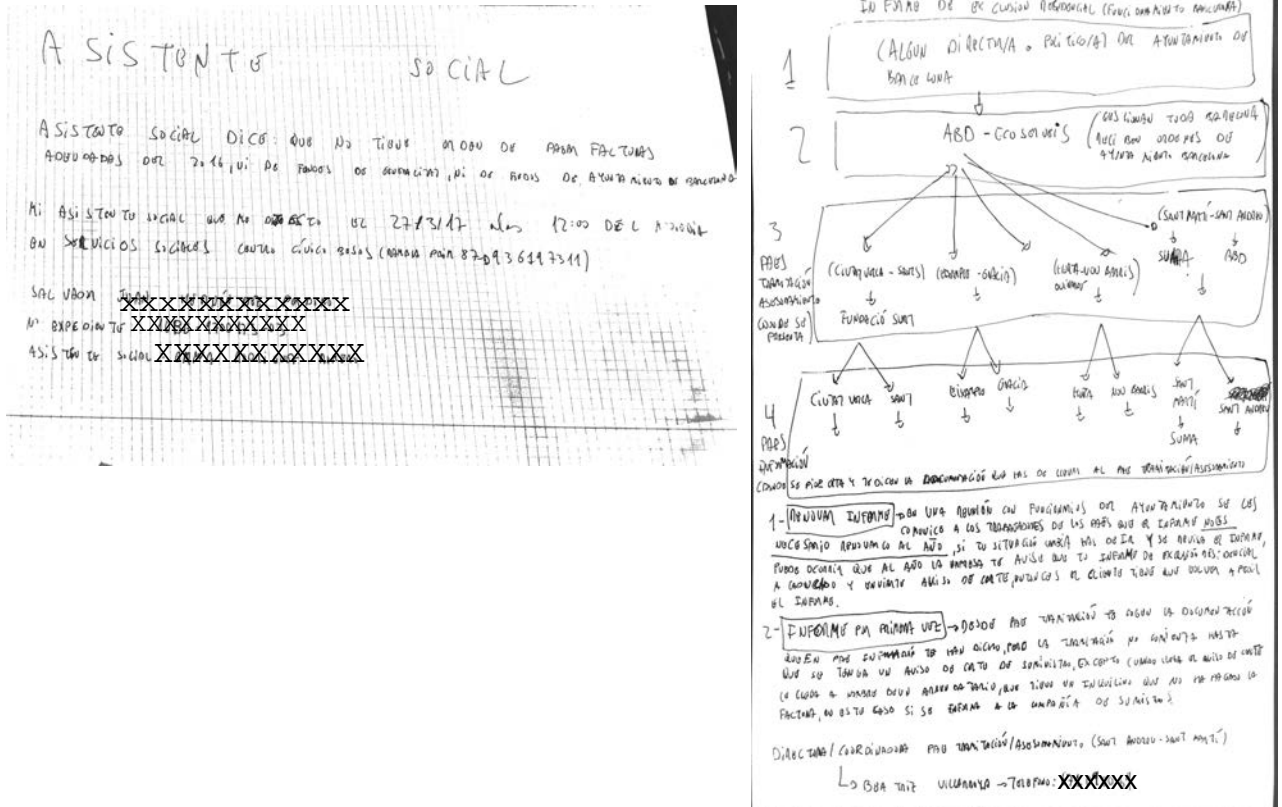 ASISTENTE SOCIAL
ASISTENTE SOCIAL DICE: QUE NO TIENE ORDEN DE PAGAR FACTURAS
ADEUDADAS DEL 2016, NI DE FONDOS DE GENERALITAT, NI DE FONDOS DE AYUNTAMIENTO DE BARCELONA
MI ASISTENTE SOCIAL QUE ME 27/3/17 A LAS 12:00 DEL
EN SERVICIOS SOCIALES CENTRO CÍVICO
SALVADOR XXXXXXXXXXXXXXX
Nº EXPEDIENTE XXXXXXXXXXX
ASISTENTE SOCIAL XXXXXXXXXXXXX
INFORME DE EXCLUSION RESIDENCIAL (FUNCIONAMIENTO BARCELONA)
1
(ALGUN DIRECTOR/A o POLITICO/A) DEL AYUNTAMIENTO DE
BARCELONA
2
ABD - Ecoserveis
(GESTIONAN TODA BARCELONA
RECIBEN ORDENES DE
AYUNTAMIENTO BARCELONA
3
PAES
TRAMITACIÓN
ASESORAMIENTO
(DONDE SE
PRESENTA)
(SANT MARTÍ - SANT ANDREU)
SUMA ABD
(CIUTAT VELLA - SANTS) (EIXAMPLE - GRÀCIA) (HORTA - NOU BARRIS)
FUNDACIÓ SURT
4
PAES
INFORMACIÓN
CIUTAT VELLA SANT EIXAMPLE GRACIA HORTA NOU BARRIS SANT MARTÍ SANT ANDREU
SUMA
(DONDE SE PIDE CITA Y TE DICEN LA DOCUMENTACIÓN QUE HAS DE LLEVAR AL PAE TRAMITACIÓN/ASESORAMIENTO
1- RENOVAR INFORME → EN UNA REUNIÓN CON FUNCIONARIOS DEL AYUNTAMIENTO SE LES
COMUNICÓ A LOS TRABAJADORES DE LOS PAES QUE EL INFORME NO ES
NECESARIO RENOVARLO AL AÑO, SI TU SITUACIÓN CAMBIA HAS DE IR Y SE REVISA EL INFORME,
PUEDE OCURRIR QUE AL AÑO LA EMPRESA TE AVISE QUE TU INFORME DE EXCLUSIÓN RESIDENCIAL
A CADUCADO Y ENVIARTE AVISO DE CORTE, ENTONCES EL CLIENTE TIENE QUE VOLVER A PEDIR
EL INFORME.
2- INFORME POR PRIMERA VEZ → DESDE PAE TRAMITACIÓN TE COGEN LA DOCUMENTACIÓN
QUE EN PAE INFORMACIÓN TE HAN DICHO, PERO LA TRAMITACIÓN NO COMIENZA HASTA
QUE SE TENGA UN AVISO DE CORTE DE SUMINISTRO, EXCEPTO (CUANDO LLEGA EL AVISO DE CORTE
LE LLEGA A NOMBRE DE UN ARRENDATARIO, QUE TIENE UN INQUILINO QUE NO HA PAGADO LA
FACTURA, EN ESTE CASO SI SE ENTREGA A LA COMPAÑÍA DE
DIRECTORA/COORDINADORA PAE TRAMITACIÓN/ASESORAMIENTO (SANT ANDREU - SANT MARTÍ)
BEATRIZ → TELEFONO: XXXXXX